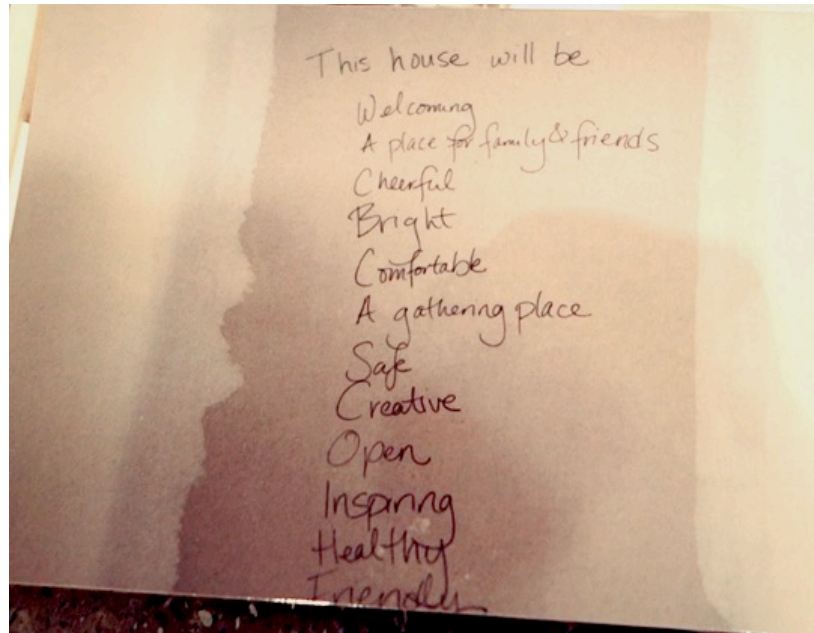 This house will be
Welcoming
A place for family & friends
Cheerful
Bright
Comfortable
A gathering place
Safe
Creative
Open
Inspiring
Healthy
Friendly